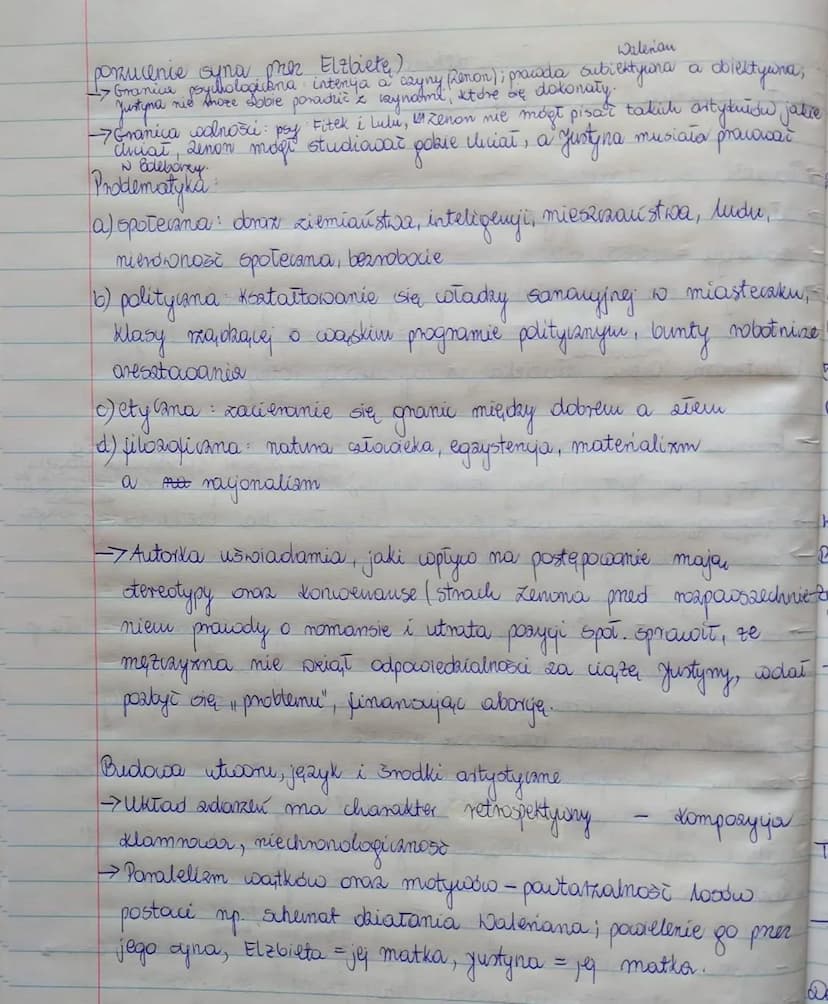 Walerian
porzucenie syna przez Elżbietę)
→ Granica psychologiczna: intencja a czyny (Zenon); prawda subiektywna a obiektywna,
Justyna nie może sobie poradzić z czynami, które się dokonały.
→ Granica wolności: psy Fitek i Lulu, Zenon nie mógł pisać takich artykułów jakie
chciał, Zenon mógł studiować gdzie chciał, a Justyna musiała pracować
w Boleborzy.
Problematyka:
a) społeczna: obraz ziemiaństwa, inteligencji, mieszczaństwa, ludu,
nierówność społeczna, bezrobocie
b) polityczna: kształtowanie się władzy sanacyjnej w miasteczku,
klasy rządzącej o wąskim programie politycznym, bunty robotnicze
aresztowania
c) etyczna: zacieranie się granic między dobrem a złem
d) filozoficzna: natura człowieka, egzystencja, materializm
a racjonalizm
→ Autorka uświadamia, jaki wpływ na postępowanie mają
stereotypy oraz konwenanse (strach Zenona przed rozpowszechnie-
niem prawdy o romansie i utrata pozycji społ. sprawił, że
mężczyzna nie wziął odpowiedzialności za ciążę Justyny, wolał
pozbyć się „problemu", finansując aborcję.
Budowa utworu, język i środki artystyczne
→ Układ zdarzeń ma charakter retrospektywny – kompozycja
klamrowa, niechronologiczność
→ Paralelizm wątków oraz motywów – powtarzalność losów
postaci np. schemat działania Waleriana; powielenie go przez
jego syna, Elżbieta = jej matka, Justyna = jej matka.